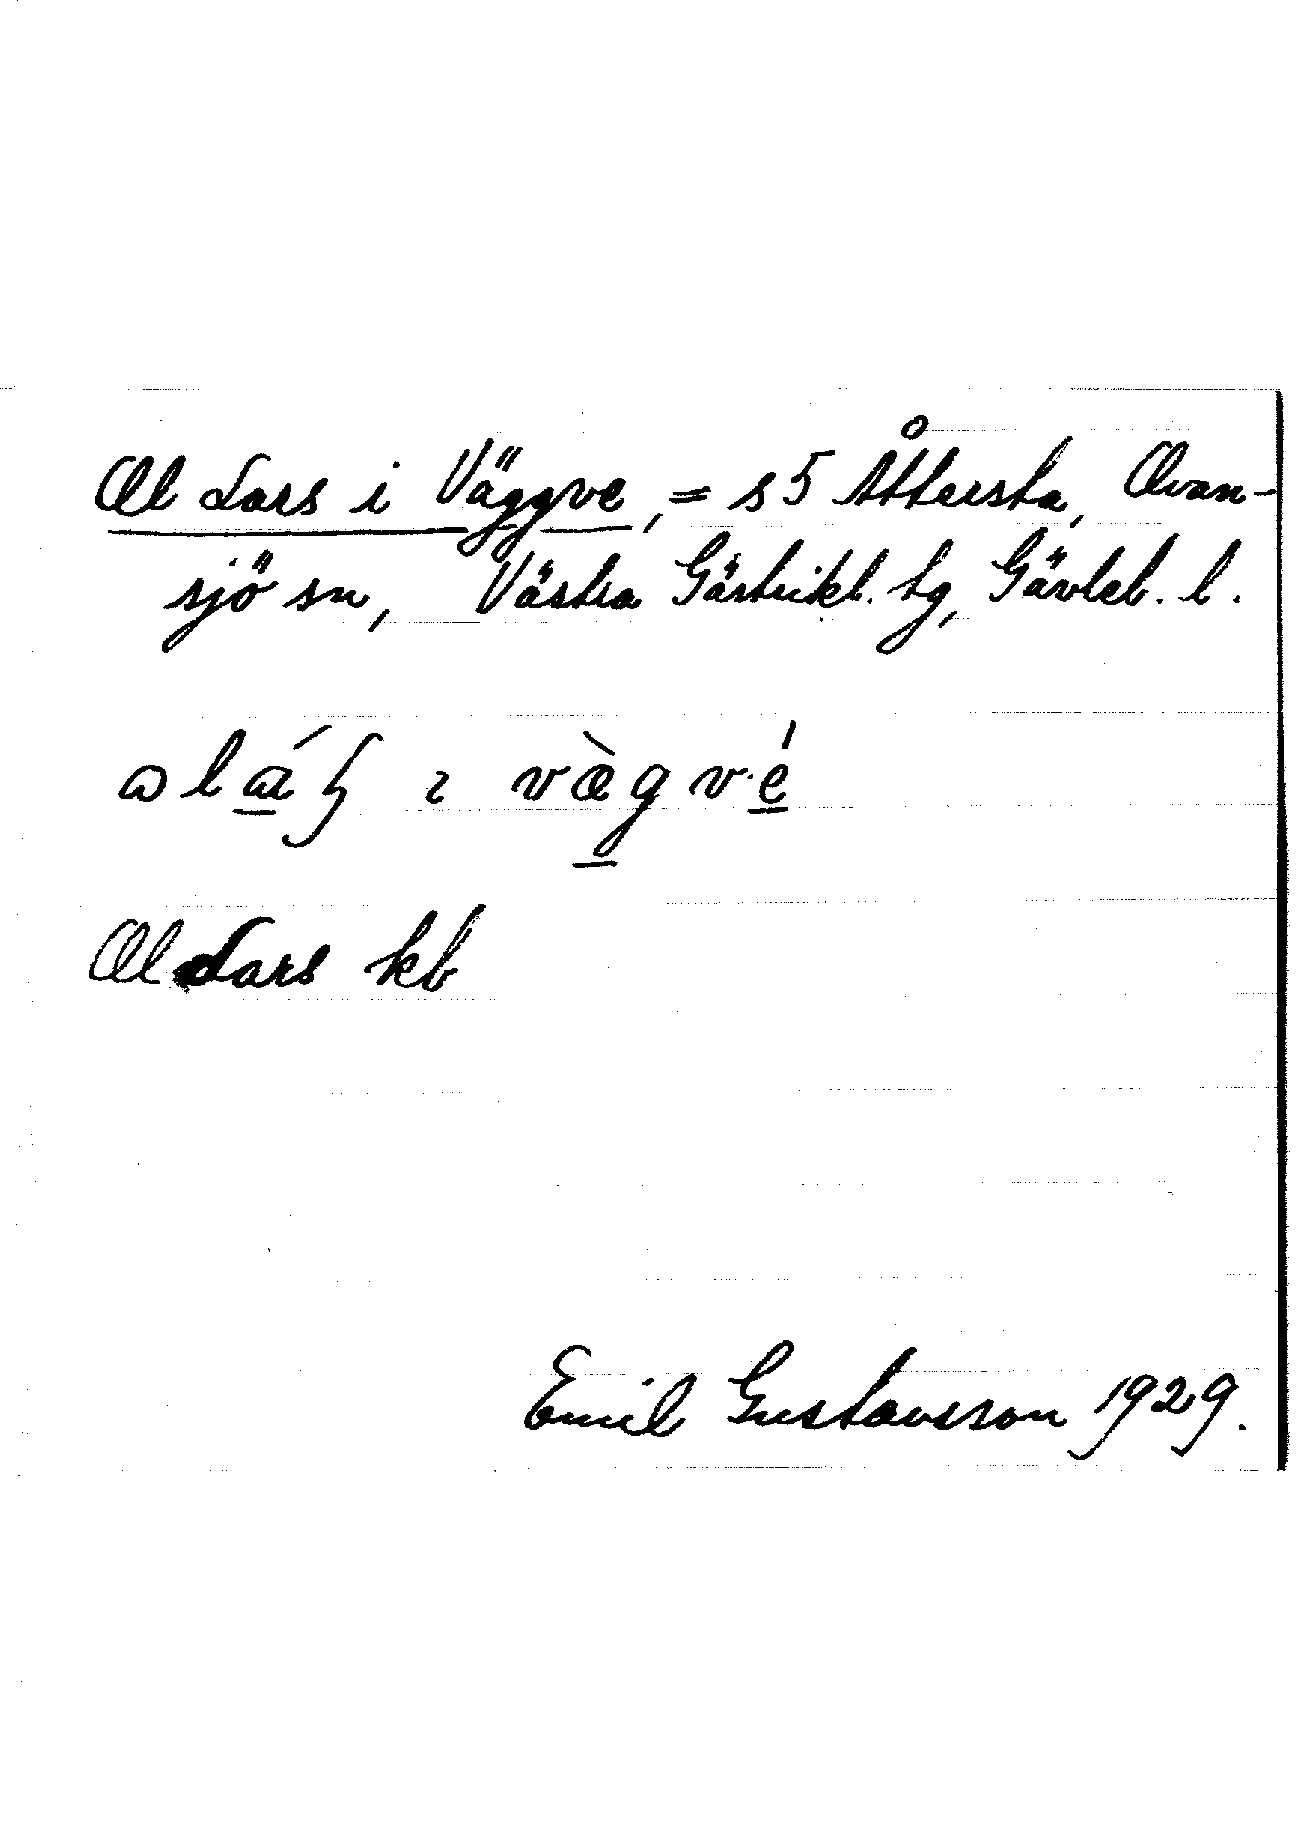 Ol Lars i Väggve, = s5 Åttersta, Ovan-
sjö sn, Västra Gästrikl. tg, Gävleb. l.
ɷ l á ʂ ɩ v æ̀ g v é
Ol Lars kb
Emil Gustavsson 1929.